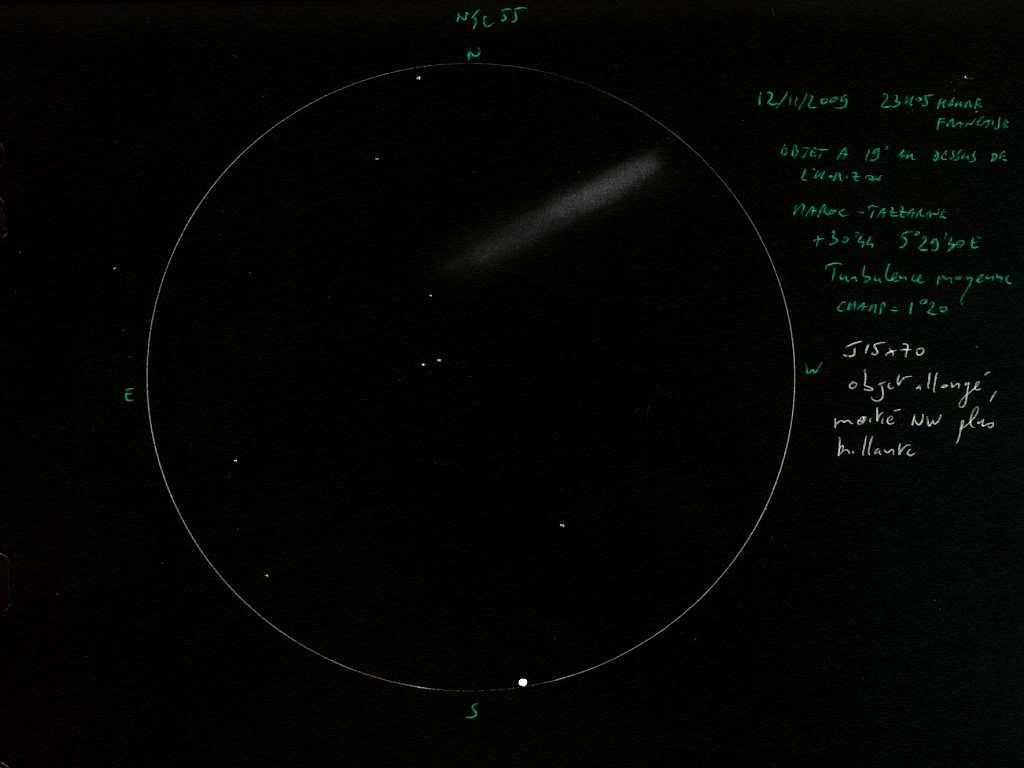 NGC 55
N
12/11/2009 23H05 HEURE
FRANCAISE
OBJET A 19° au DESSUS DE
L'HORIZON
MAROC - TAZZARINE
+30°44 5°29'30E
Turbulence moyenne
CHAMP = 1°20
W
E
J15x70
objet allongé,
moitié NW plus
brillante
S